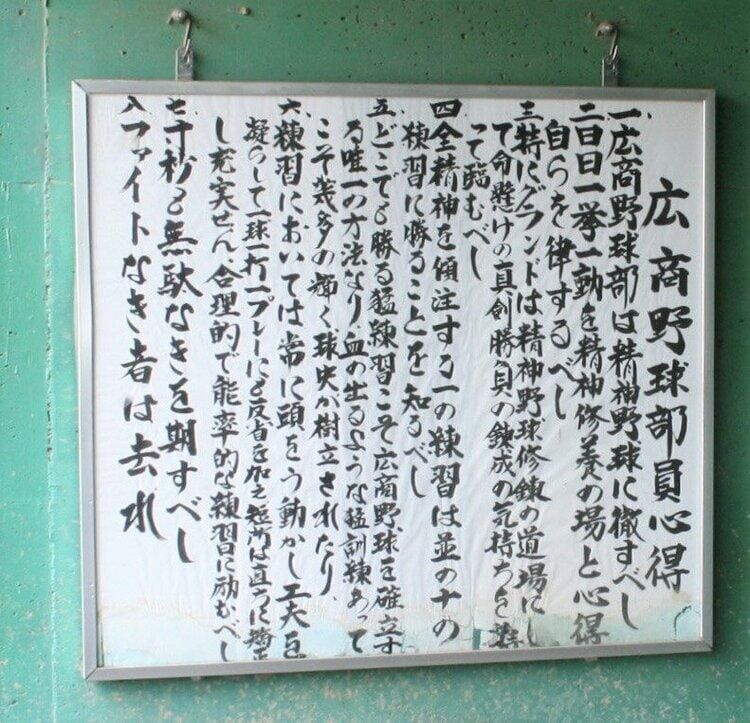 広商野球部員心得
一、広商野球部は精神野球に徹すべし
二、日日一挙一動を精神修養の場と心得
自らを律するべし
三、特にグランドは精神野球修錬の道場にし
て命懸けの真剣勝負の錬成の気持ちを
って臨むべし
四、全精神を傾注する一の練習は並の十の
練習に勝ることを知るべし
五、どこでも勝る猛練習こそ広商野球を確立す
る唯一の方法なり、血の出るような猛訓練あって
こそ幾多の輝く球史が樹立されたり、
六、練習においては常に頭をう動かし工夫を
凝らして一球一打一プレーにも反省を加え短所は直ちに
し充実せん、合理的で能率的な練習に励むべし
七、十秒も無駄なきを期すべし
八、ファイトなき者は去れ